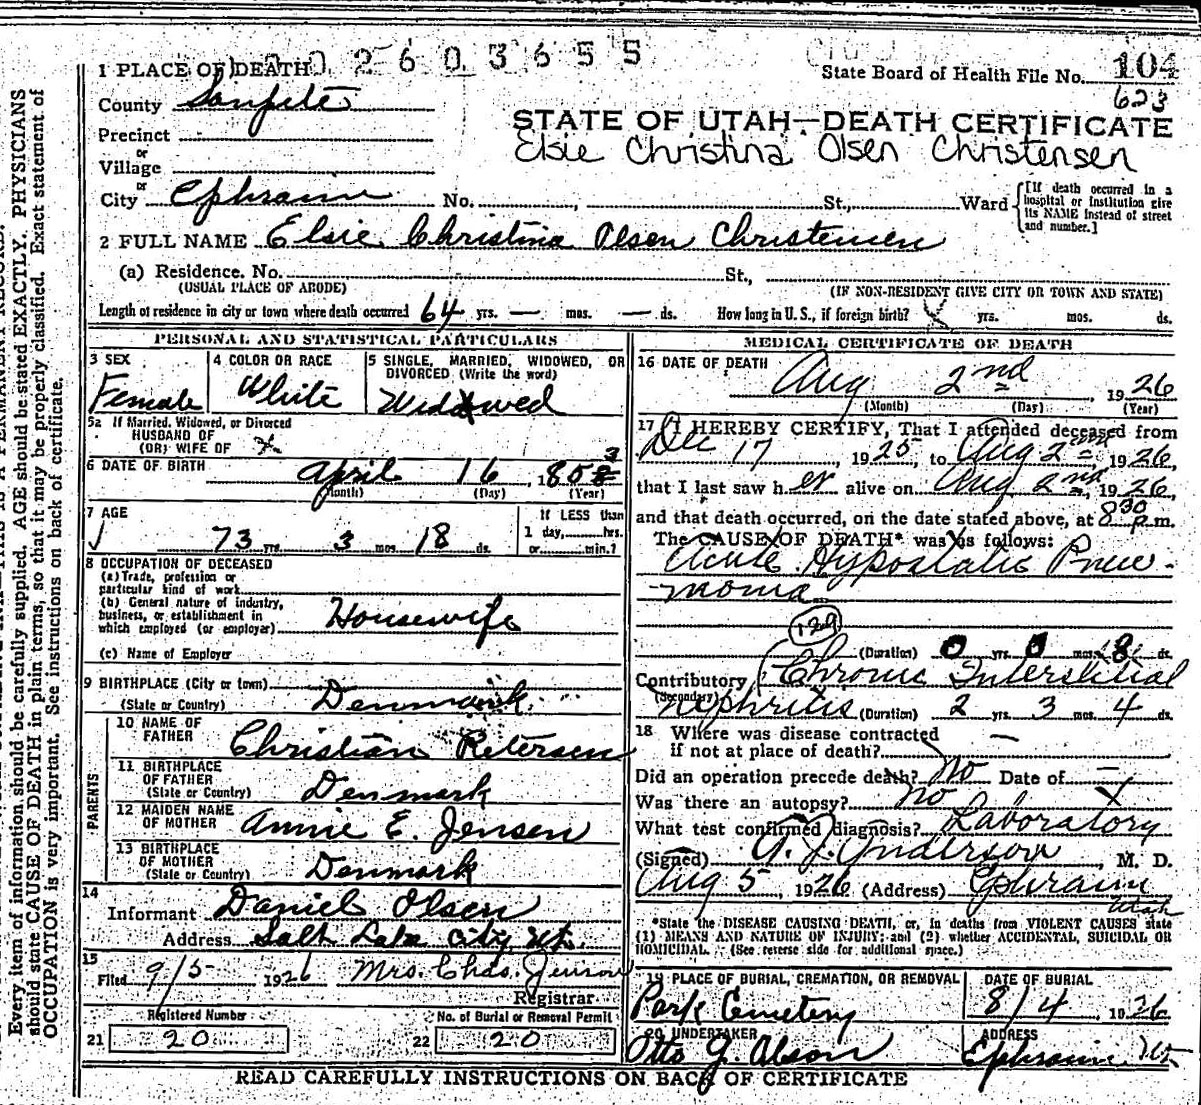 2603655
1 PLACE OF DEATH
State Board of Health File No. 104
623
County Sanpete
STATE OF UTAH—DEATH CERTIFICATE
Elsie Christina Olsen Christensen
Precinct
or
Village
or
City Ephraim No. , St., Ward
[If death occurred in a hospital or institution give its NAME instead of street and number.]
2 FULL NAME Elsie Christina Olsen Christensen
(a) Residence. No. St.,
(USUAL PLACE OF ABODE)
(IF NON-RESIDENT GIVE CITY OR TOWN AND STATE)
Length of residence in city or town where death occurred 64 yrs. — mos. — ds. How long in U. S., if foreign birth? yrs. mos. ds.
PERSONAL AND STATISTICAL PARTICULARS
3 SEX
Female
4 COLOR OR RACE
White
5 SINGLE, MARRIED, WIDOWED, OR
DIVORCED (Write the word)
Widowed
5a If Married, Widowed, or Divorced
HUSBAND OF
(OR) WIFE OF x
6 DATE OF BIRTH April 16, 1853
(Month) (Day) (Year)
7 AGE
73 yrs. 3 mos. 18 ds.
If LESS than
1 day, hrs.
or min.?
8 OCCUPATION OF DECEASED
(a) Trade, profession or
particular kind of work
(b) General nature of industry,
business, or establishment in
which employed (or employer) Housewife
(c) Name of Employer
9 BIRTHPLACE (City or town)
(State or Country) Denmark
PARENTS
10 NAME OF
FATHER Christian Petersen
11 BIRTHPLACE
OF FATHER
(State or Country) Denmark
12 MAIDEN NAME
OF MOTHER Annie E. Jensen
13 BIRTHPLACE
OF MOTHER
(State or Country) Denmark
14
Informant Daniel Olsen
Address Salt Lake City, Ut.
15
Filed 9/5 1926 Mrs. Chas. Jenson
Registrar
Registered Number
No. of Burial or Removal Permit
21 20
22 20
MEDICAL CERTIFICATE OF DEATH
16 DATE OF DEATH
Aug 2nd, 1926
(Month) (Day) (Year)
17 I HEREBY CERTIFY, That I attended deceased from
Dec 17, 1925, to Aug 2nd, 1926,
that I last saw her alive on Aug 2nd, 1926,
and that death occurred, on the date stated above, at 830 p.m.
The CAUSE OF DEATH* was as follows:
Acute Hypostatic Pneu-
monia
129
(Duration) 0 yrs. 0 mos. 8 ds.
Contributory Chronic Interstitial
(Secondary)
Nephritis (Duration) 2 yrs. 3 mos. 4 ds.
18 Where was disease contracted
if not at place of death? —
Did an operation precede death? No Date of —
Was there an autopsy? no
What test confirmed diagnosis? Laboratory
(Signed) A. J. Anderson, M. D.
Aug 5, 1926 (Address) Ephraim
Utah
*State the DISEASE CAUSING DEATH, or, in deaths from VIOLENT CAUSES state
(1) MEANS AND NATURE OF INJURY; and (2) whether ACCIDENTAL, SUICIDAL OR
HOMICIDAL. (See reverse side for additional space.)
19 PLACE OF BURIAL, CREMATION, OR REMOVAL
Park Cemetery
DATE OF BURIAL
8/4, 1926
20 UNDERTAKER
Otto J. Olson
ADDRESS
Ephraim, Ut
READ CAREFULLY INSTRUCTIONS ON BACK OF CERTIFICATE
Every item of information should be carefully supplied. AGE should be stated EXACTLY. PHYSICIANS
should state CAUSE OF DEATH in plain terms, so that it may be properly classified. Exact statement of
OCCUPATION is very important. See instructions on back of certificate.